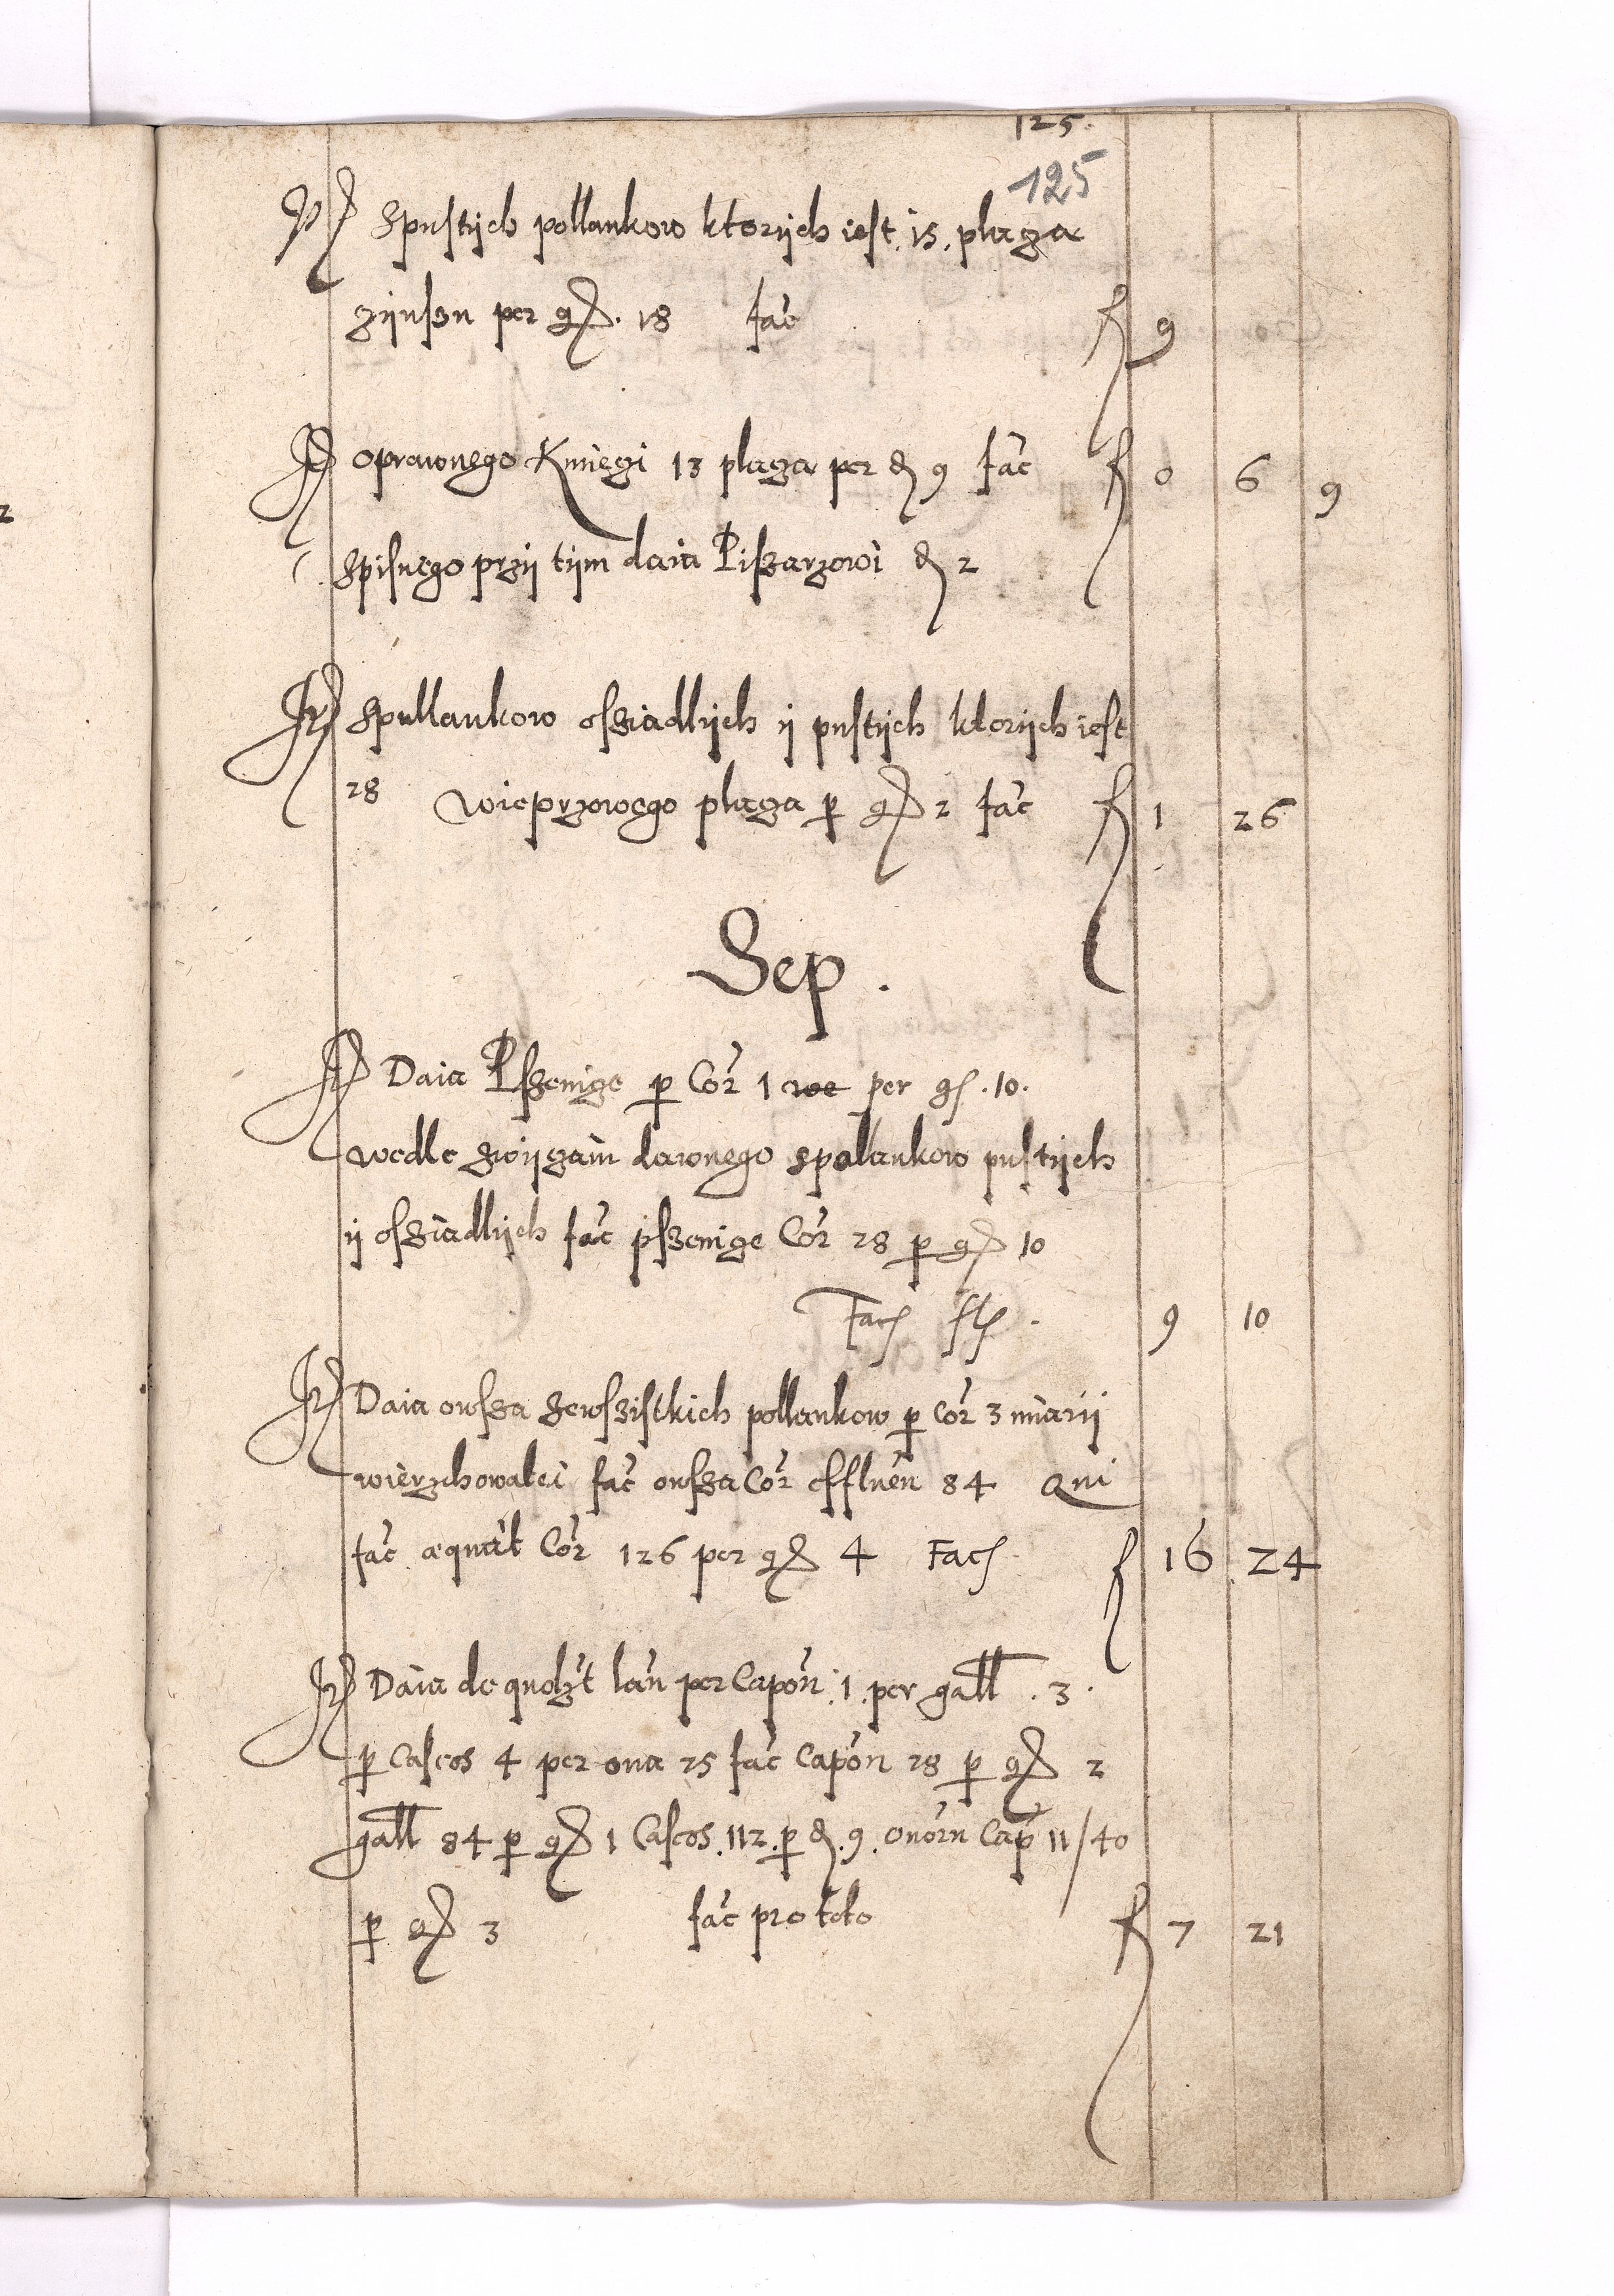 125.
125
It Spustych pollankow ktorych iest 15. plaza
zynszu per gr. 18 fac f 9
It oprawnego Kmiegi 13 plaza per d 9 fac f 0 6 9
Spisnego przy tym daia Piszarzowi d 2
It Spullankow osziadlych y pustych ktorych iest
28 wieprzowego plaza p gr 2 fac f 1 26
Sep.
It Daia Pszenige p Cor 1 per gr. 10.
wedle zwyzain dawnego spolankow pustych
y osziadlych fac pszenige Cor 28 p gr 10
Fac fl. 9 10
It Daia owsza zewszistkich pollankow p cor 3 miary
wierzchowatei fac owsza Cor effluen 84 Qui
fac æquat Cor 126 per gr 4 Fac f 16 24
It Daia de quolzt lan per Capon. 1. per gall. 3.
p Caseos 4 per oua 25 fac Capon 28 p gr 2
gall 84 p gr 1 Caseos. 112. p d. 9. ouorn Cap 11/40
p gr 3 fac pro toto f 7 21